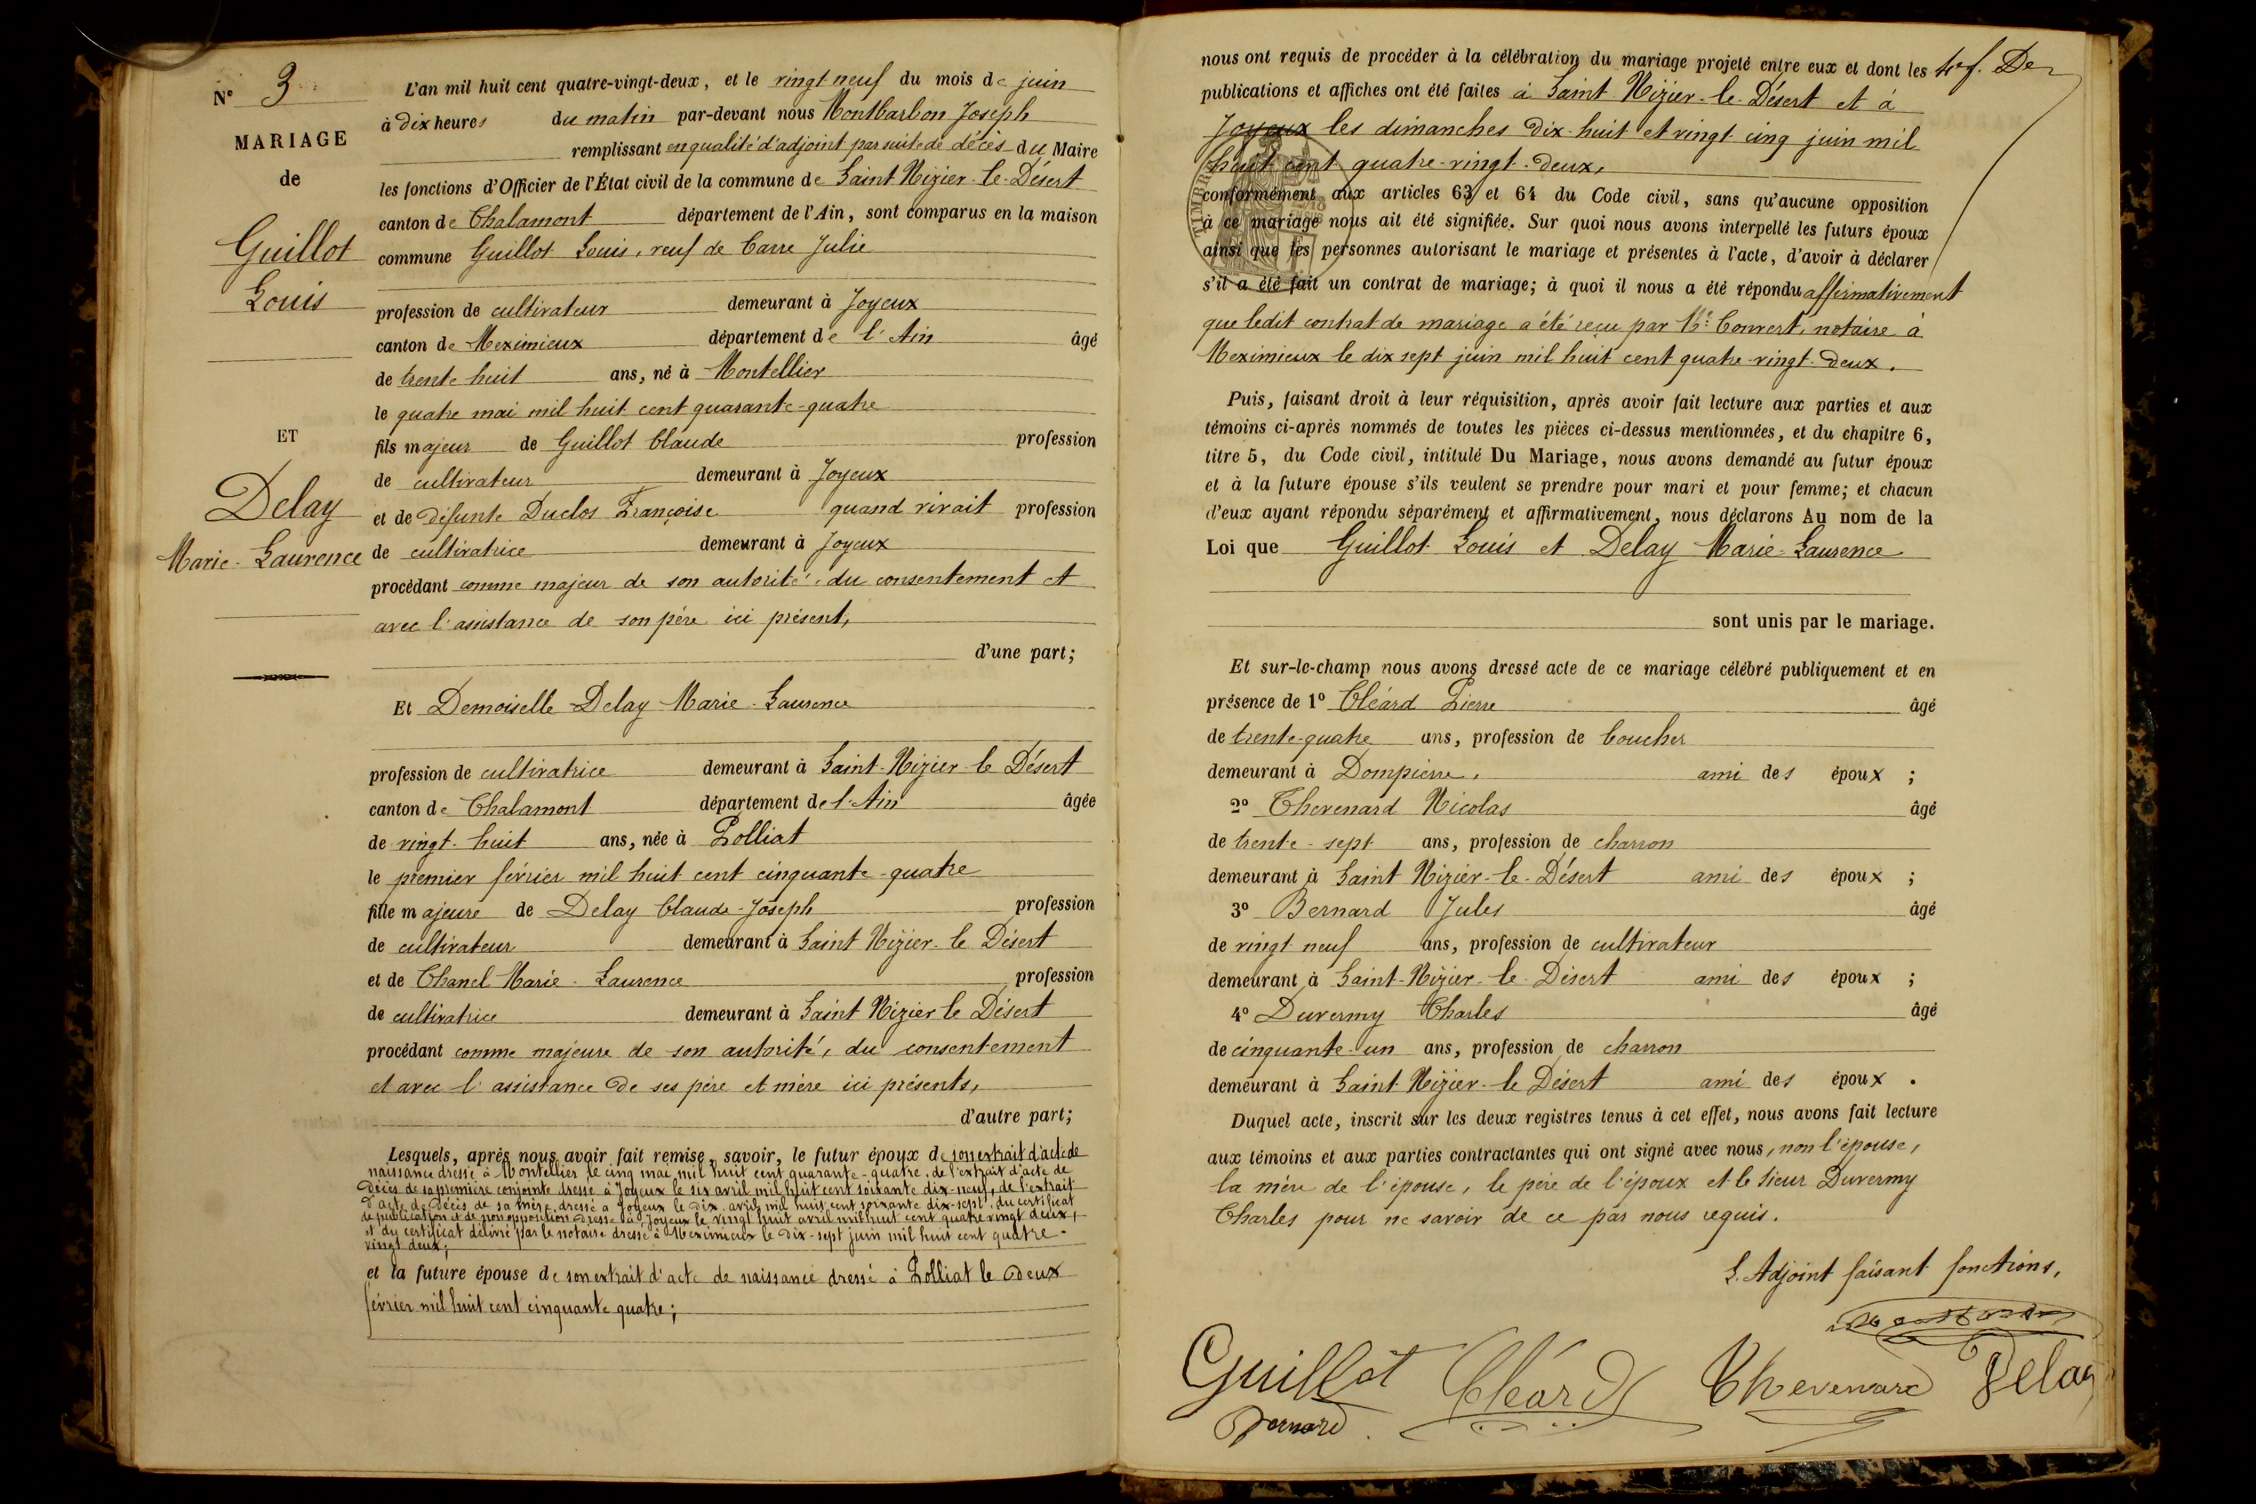 N° 3
MARIAGE
de
Guillot
Louis
ET
Delay
Marie-Laurence
L'an mil huit cent quatre-vingt-deux, et le vingt neuf du mois de juin
à dix heures du matin par-devant nous Montbarbon Joseph
remplissant en qualité d'adjoint par suite de décès du Maire
les fonctions d'Officier de l'État civil de la commune de Saint Nizier-le-Désert
canton de Chalamont département de l'Ain, sont comparus en la maison
commune Guillot Louis, veuf de Carre Julie
profession de cultivateur demeurant à Joyeux
canton de Meximieux département de l'Ain âgé
de trente huit ans, né à Montellier
le quatre mai mil huit cent quarante-quatre
fils majeur de Guillot Claude profession
de cultivateur demeurant à Joyeux
et de défunte Duclos Françoise quand vivait profession
de cultivatrice demeurant à Joyeux
procédant comme majeur de son autorité, du consentement et
avec l'assistance de son père ici présent,
d'une part;
Et Demoiselle Delay Marie-Laurence
profession de cultivatrice demeurant à Saint-Nizier-le Désert
canton de Chalamont département de l'Ain âgée
de vingt-huit ans, née à Polliat
le premier février mil huit cent cinquante-quatre
fille majeure de Delay Claude-Joseph profession
de cultivateur demeurant à Saint Nizier-le Désert
et de Chanel Marie-Laurence profession
de cultivatrice demeurant à Saint Nizier le Désert
procédant comme majeure de son autorité, du consentement
et avec l'assistance de ses père et mère ici présents,
d'autre part;
Lesquels, après nous avoir fait remise, savoir, le futur époux de son extrait d'acte de
naissance dressé à Montellier le cinq mai mil huit cent quarante-quatre, de l'extrait d'acte de
décès de sa première conjointe dressé à Joyeux le six avril mil huit cent soixante dix-neuf, de l'extrait
d'acte de décès de sa mère dressé à Joyeux le dix avril mil huit cent soixante dix-sept, du certificat
de publication et de non opposition dressé à Joyeux le vingt huit avril mil huit cent quatre vingt deux,
et du certificat délivré par le notaire dressé à Meximieux le dix-sept juin mil huit cent quatre-
vingt deux;
et la future épouse de son extrait d'acte de naissance dressé à Polliat le deux
février mil huit cent cinquante quatre;
nous ont requis de procéder à la célébration du mariage projeté entre eux et dont les
publications et affiches ont été faites à Saint Nizier-le-Désert et à
Joyeux les dimanches dix-huit et vingt cinq juin mil
huit cent quatre-vingt-deux,
conformément aux articles 63 et 64 du Code civil, sans qu'aucune opposition
à ce mariage nous ait été signifiée. Sur quoi nous avons interpellé les futurs époux
ainsi que les personnes autorisant le mariage et présentes à l'acte, d'avoir à déclarer
s'il a été fait un contrat de mariage; à quoi il nous a été répondu affirmativement
que ledit contrat de mariage a été reçu par Me Convert, notaire à
Meximieux le dix sept juin mil huit cent quatre-vingt-deux.
Puis, faisant droit à leur réquisition, après avoir fait lecture aux parties et aux
témoins ci-après nommés de toutes les pièces ci-dessus mentionnées, et du chapitre 6,
titre 5, du Code civil, intitulé Du Mariage, nous avons demandé au futur époux
et à la future épouse s'ils veulent se prendre pour mari et pour femme; et chacun
d'eux ayant répondu séparément et affirmativement, nous déclarons Au nom de la
Loi que Guillot Louis et Delay Marie-Laurence
sont unis par le mariage.
Et sur-le-champ nous avons dressé acte de ce mariage célébré publiquement et en
présence de 1° Cléard Pierre âgé
de trente-quatre ans, profession de boucher
demeurant à Dompierre, ami des époux ;
2° Thevenard Nicolas âgé
de trente-sept ans, profession de charron
demeurant à Saint Nizier-le-Désert ami des époux ;
3° Bernard Jules âgé
de vingt neuf ans, profession de cultivateur
demeurant à Saint-Nizier-le-Désert ami des époux ;
4° Duvermy Charles âgé
de cinquante-un ans, profession de charron
demeurant à Saint Nizier-le Désert ami des époux .
Duquel acte, inscrit sur les deux registres tenus à cet effet, nous avons fait lecture
aux témoins et aux parties contractantes qui ont signé avec nous, non l'épouse,
la mère de l'épouse, le père de l'époux et le sieur Duvermy
Charles pour ne savoir de ce par nous requis.
L'Adjoint faisant fonctions,
Guillot Cléard Thevenard Delay
Bernard